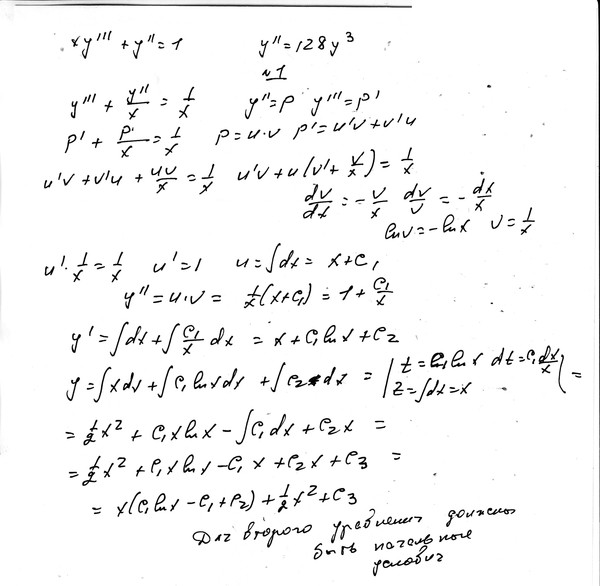 xy''' + y'' = 1     y'' = 128y³
№1
y''' + y''/x = 1/x     y'' = p   y''' = p'
p' + p'/x = 1/x     p = u·v   p' = u'v + v'u
u'v + v'u + uv/x = 1/x   u'v + u(v' + v/x) = 1/x
dv/dx = -v/x   dv/v = -dx/x
lnv = -lnx   v = 1/x
u'·1/x = 1/x   u' = 1   u = ∫dx = x + c₁
y'' = u·v = 1/x(x + c₁) = 1 + c₁/x
y' = ∫dx + ∫c₁/x dx = x + c₁lnx + c₂
y = ∫xdx + ∫c₁lnxdx + ∫c₂dx = | t = c₁lnx   dt = c₁dx/x
z = ∫dx = x | =
= 1/2x² + c₁xlnx - ∫c₁dx + c₂x =
= 1/2x² + c₁xlnx - c₁x + c₂x + c₃ =
= x(c₁lnx - c₁ + c₂) + 1/2x² + c₃
Для второго уравнения должны
быть начальные
условия